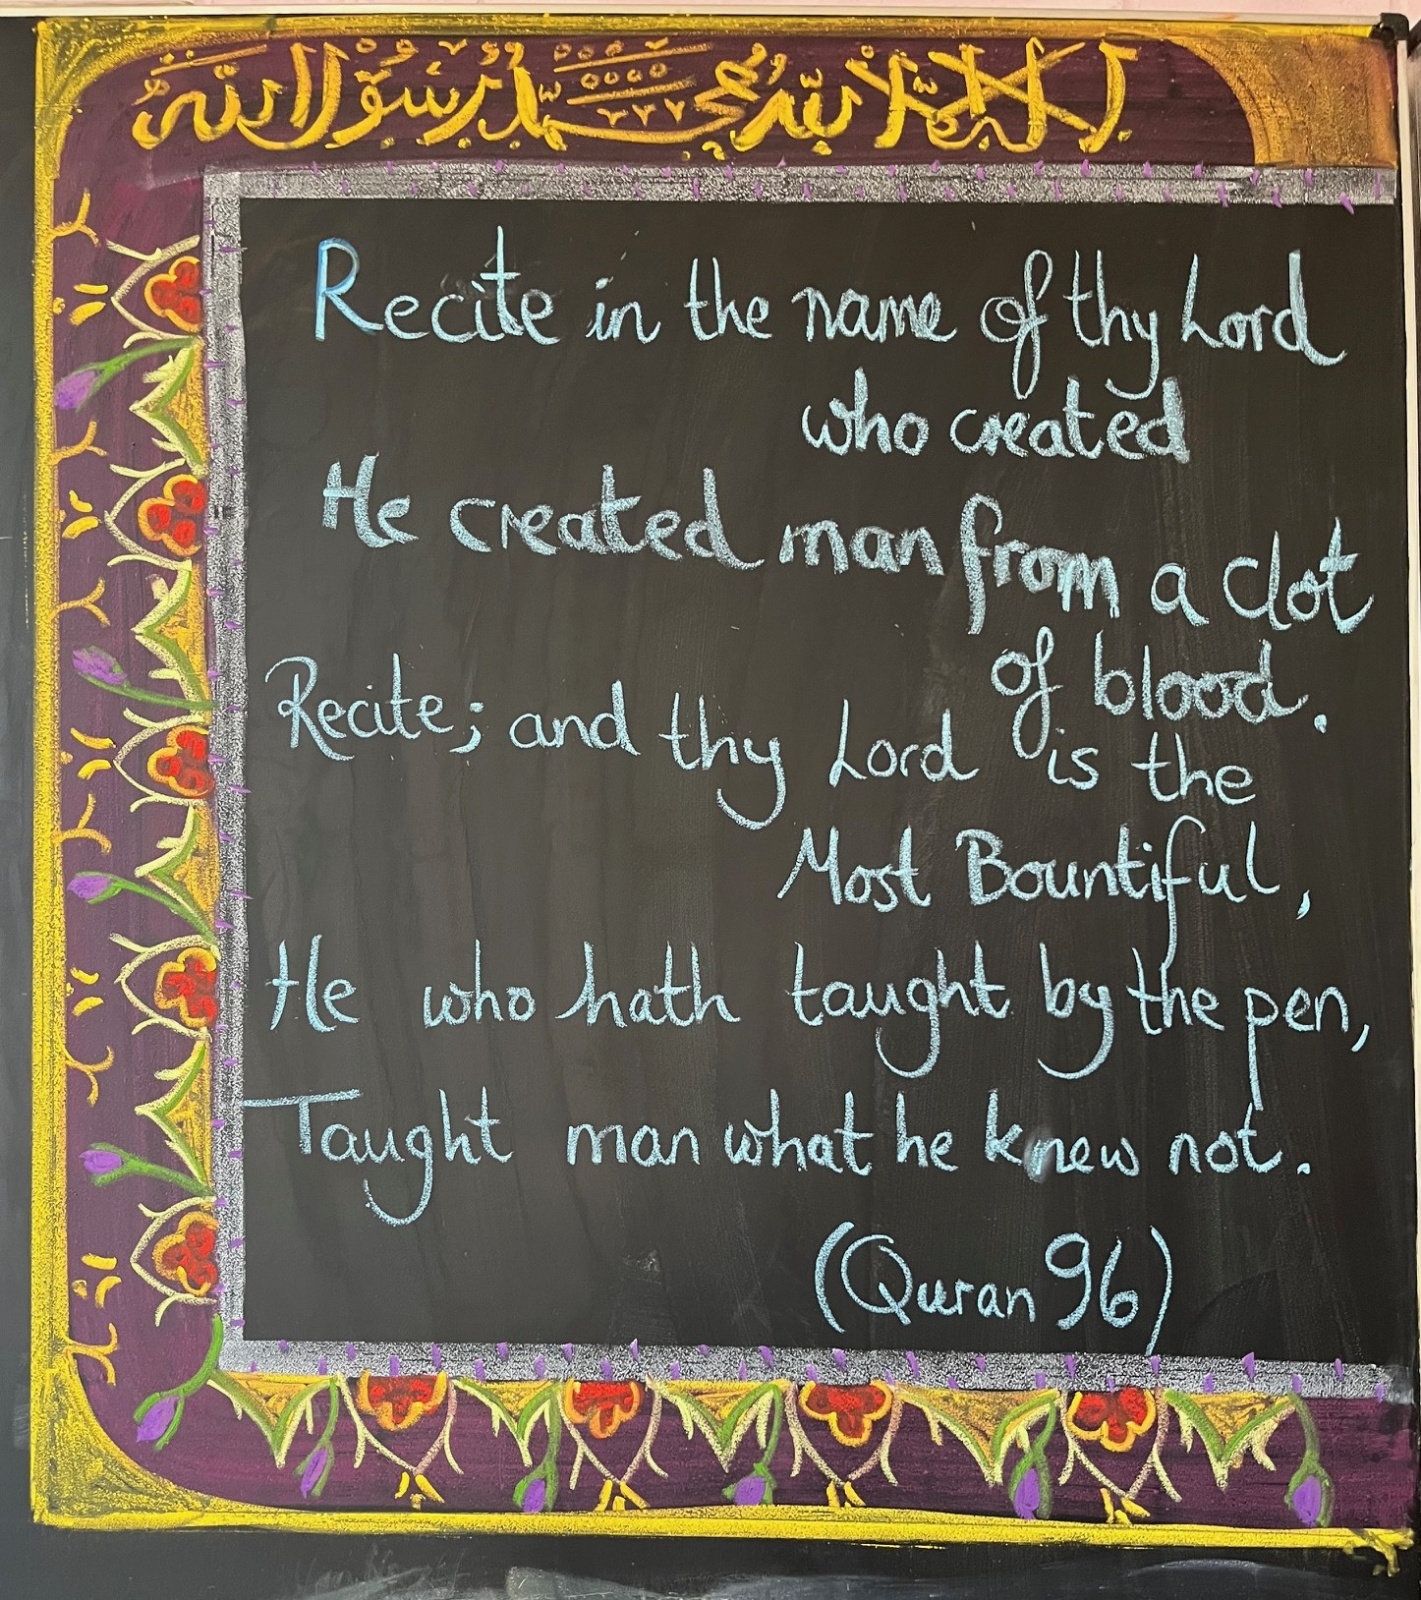 لا إله إلا الله محمد رسول الله
Recite in the name of thy Lord
who created
He created man from a clot
of blood.
Recite; and thy Lord is the
Most Bountiful,
He who hath taught by the pen,
Taught man what he knew not.
(Quran 96)